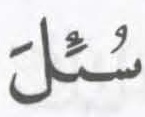 سُئِلَ